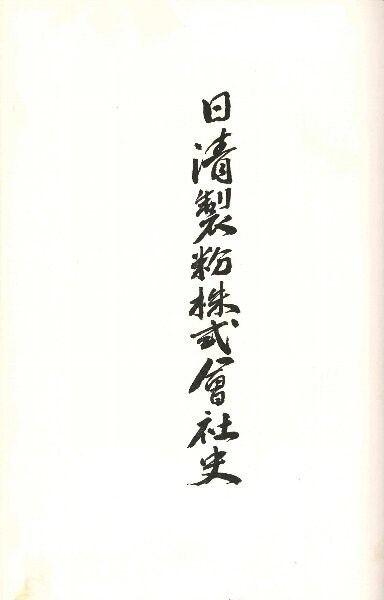 日清製粉株式會社史